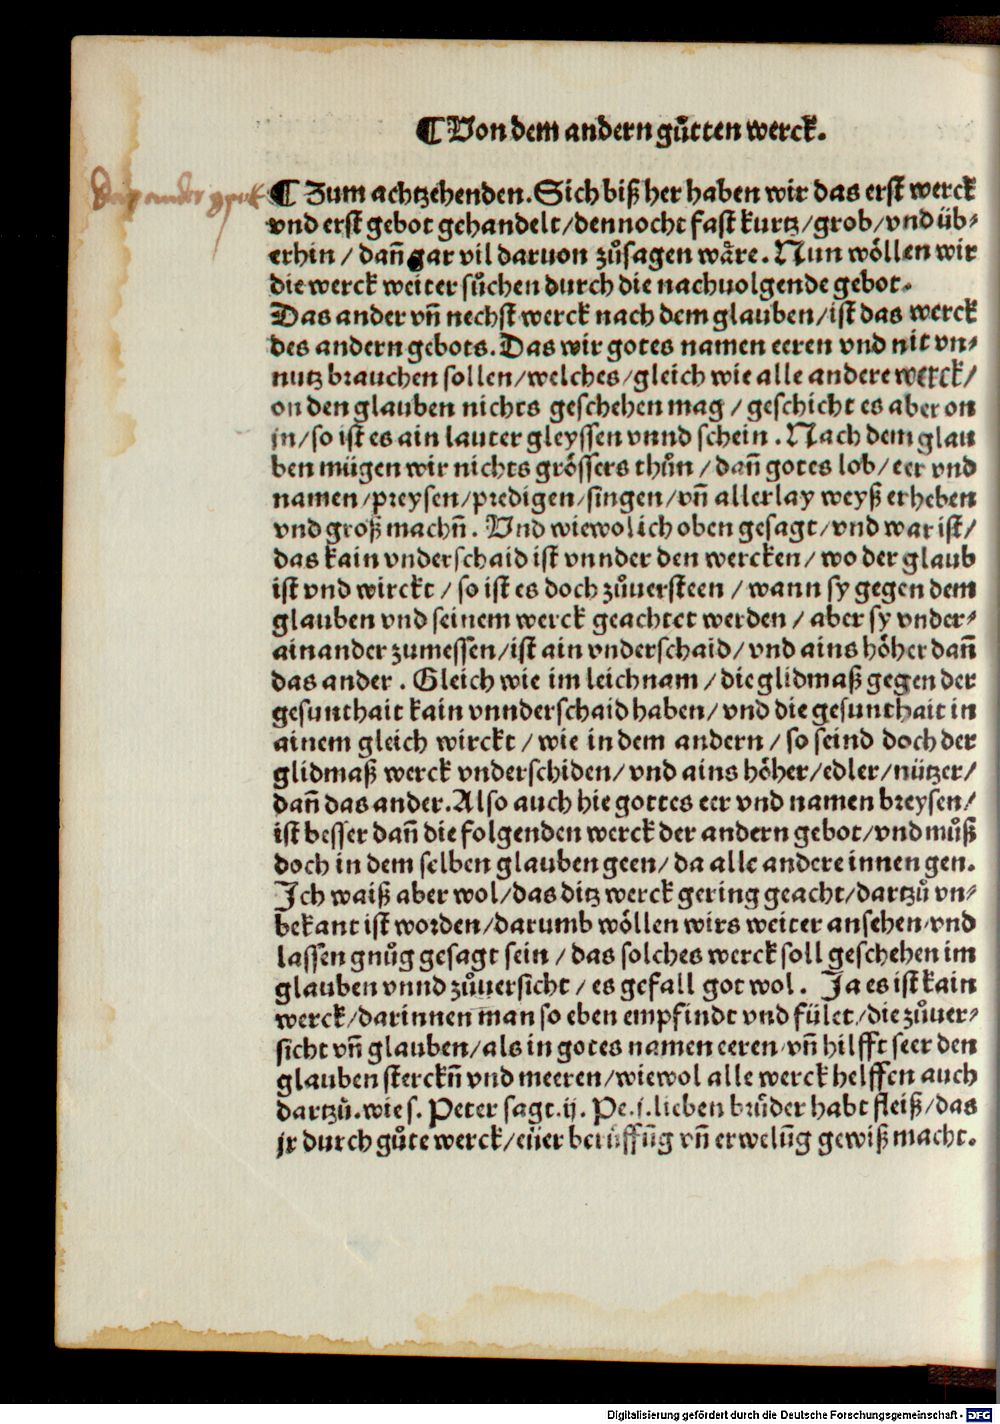 ¶ Von dem andern gůtten werck.
¶ Zum achtzehenden. Sich biß her haben wir das erst werck
vnd erst gebot gehandelt/dennocht fast kurtz/grob/vnd üb-
erhin / dañ gar vil daruon zůsagen wäre. Nun wöllen wir
die werck weiter sůchen durch die nachuolgende gebot.
Das ander vñ nechst werck nach dem glauben/ist das werck
des andern gebots. Das wir gotes namen eeren vnd nit vn-
nutz brauchen sollen/welches/gleich wie alle andere werck/
on den glauben nichts geschehen mag / geschicht es aber on
jn/so ist es ain lauter gleyssen vnnd schein . Nach dem glau
ben mügen wir nichts grössers thůn / dañ gotes lob/ eer vnd
namen/preysen/predigen/singen/vñ allerlay weyß erheben
vnd groß machñ. Vnd wiewol ich oben gesagt/vnd war ist/
das kain vnderschaid ist vnnder den wercken/ wo der glaub
ist vnd wirckt / so ist es doch zůuersteen / wann sy gegen dem
glauben vnd seinem werck geachtet werden / aber sy vnder-
ainander zumessen/ist ain vnderschaid/ vnd ains höher dañ
das ander . Gleich wie im leichnam / die glidmaß gegen der
gesunthait kain vnnderschaid haben/ vnd die gesunthait in
ainem gleich wirckt / wie in dem andern / so seind doch der
glidmaß werck vnderschiden/ vnd ains höher/edler/nützer/
dañ das ander. Also auch hie gottes eer vnd namen breysen/
ist besser dañ die folgenden werck der andern gebot/vnd můß
doch in dem selben glauben geen/ da alle andere innen gen.
Ich waiß aber wol/das ditz werck gering geacht/dartzů vn-
bekant ist worden/darumb wöllen wirs weiter ansehen/vnd
lassen gnůg gesagt sein / das solches werck soll geschehen im
glauben vnnd zůuersicht / es gefall got wol . Ja es ist kain
werck/darinnen man so eben empfindt vnd fület/die zůuer-
sicht vñ glauben/als in gotes namen eeren/vñ hilfft seer den
glauben sterckñ vnd meeren/wiewol alle werck helffen auch
dartzů. wie s. Peter sagt. ij. Pe. j. lieben brůder habt fleiß/das
jr durch gůte werck/eüer berüffũg vñ erwelũg gewiß macht.
Digitalisierung gefördert durch die Deutsche Forschungsgemeinschaft - DFG